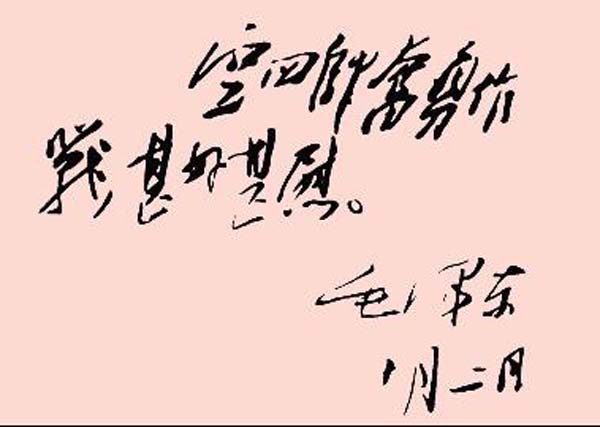 空四師奮勇作
戰,甚好甚慰。
毛澤東
十月二日